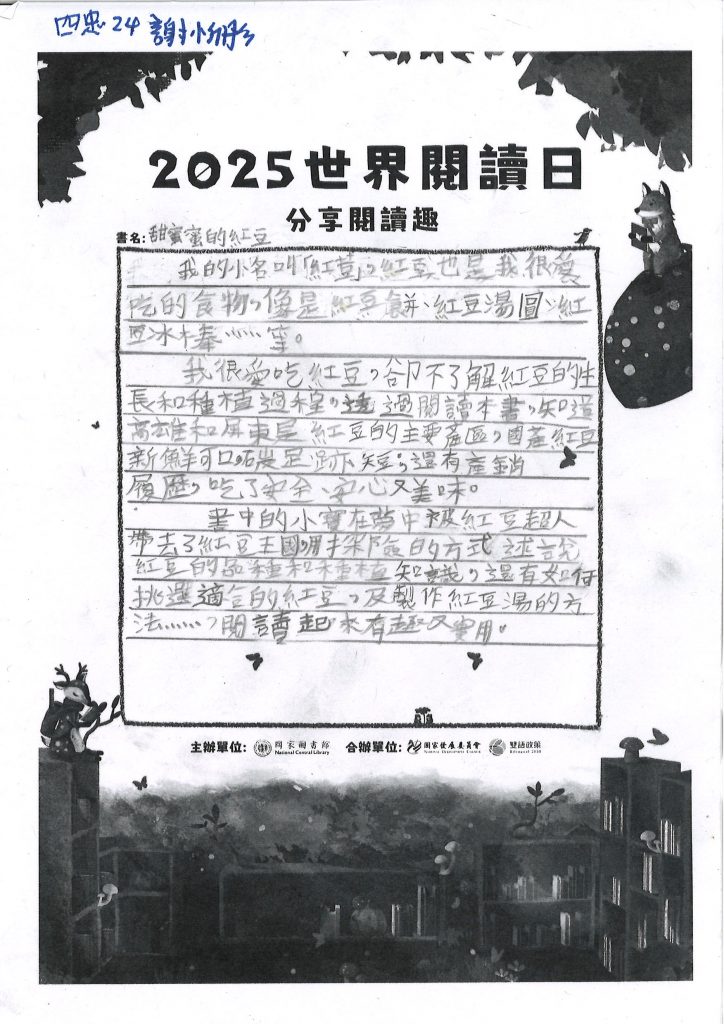 四忠 24 謝小彤
2025世界閱讀日
分享閱讀趣
書名:甜蜜蜜的紅豆
我的小名叫「紅荳」,紅豆也是我很愛
吃的食物,像是紅豆餅、紅豆湯圓、紅
豆冰棒……等。
我很愛吃紅豆,卻不了解紅豆的生
長和種植過程。透過閱讀本書,知道
高雄和屏東是紅豆的主要產區,國產紅豆
新鮮可口碳足跡短;還有產銷
履歷,吃了安全、安心又美味。
書中的小寶在夢中被紅豆超人
帶去了紅豆王國,用探險的方式述說
紅豆的品種和種植知識,還有如何
挑選適合的紅豆,及製作紅豆湯的方
法……,閱讀起來有趣又實用。
主辦單位: 國家圖書館 National Central Library 合辦單位: 國家發展委員會 National Development Council 雙語政策 Bilingual 2030